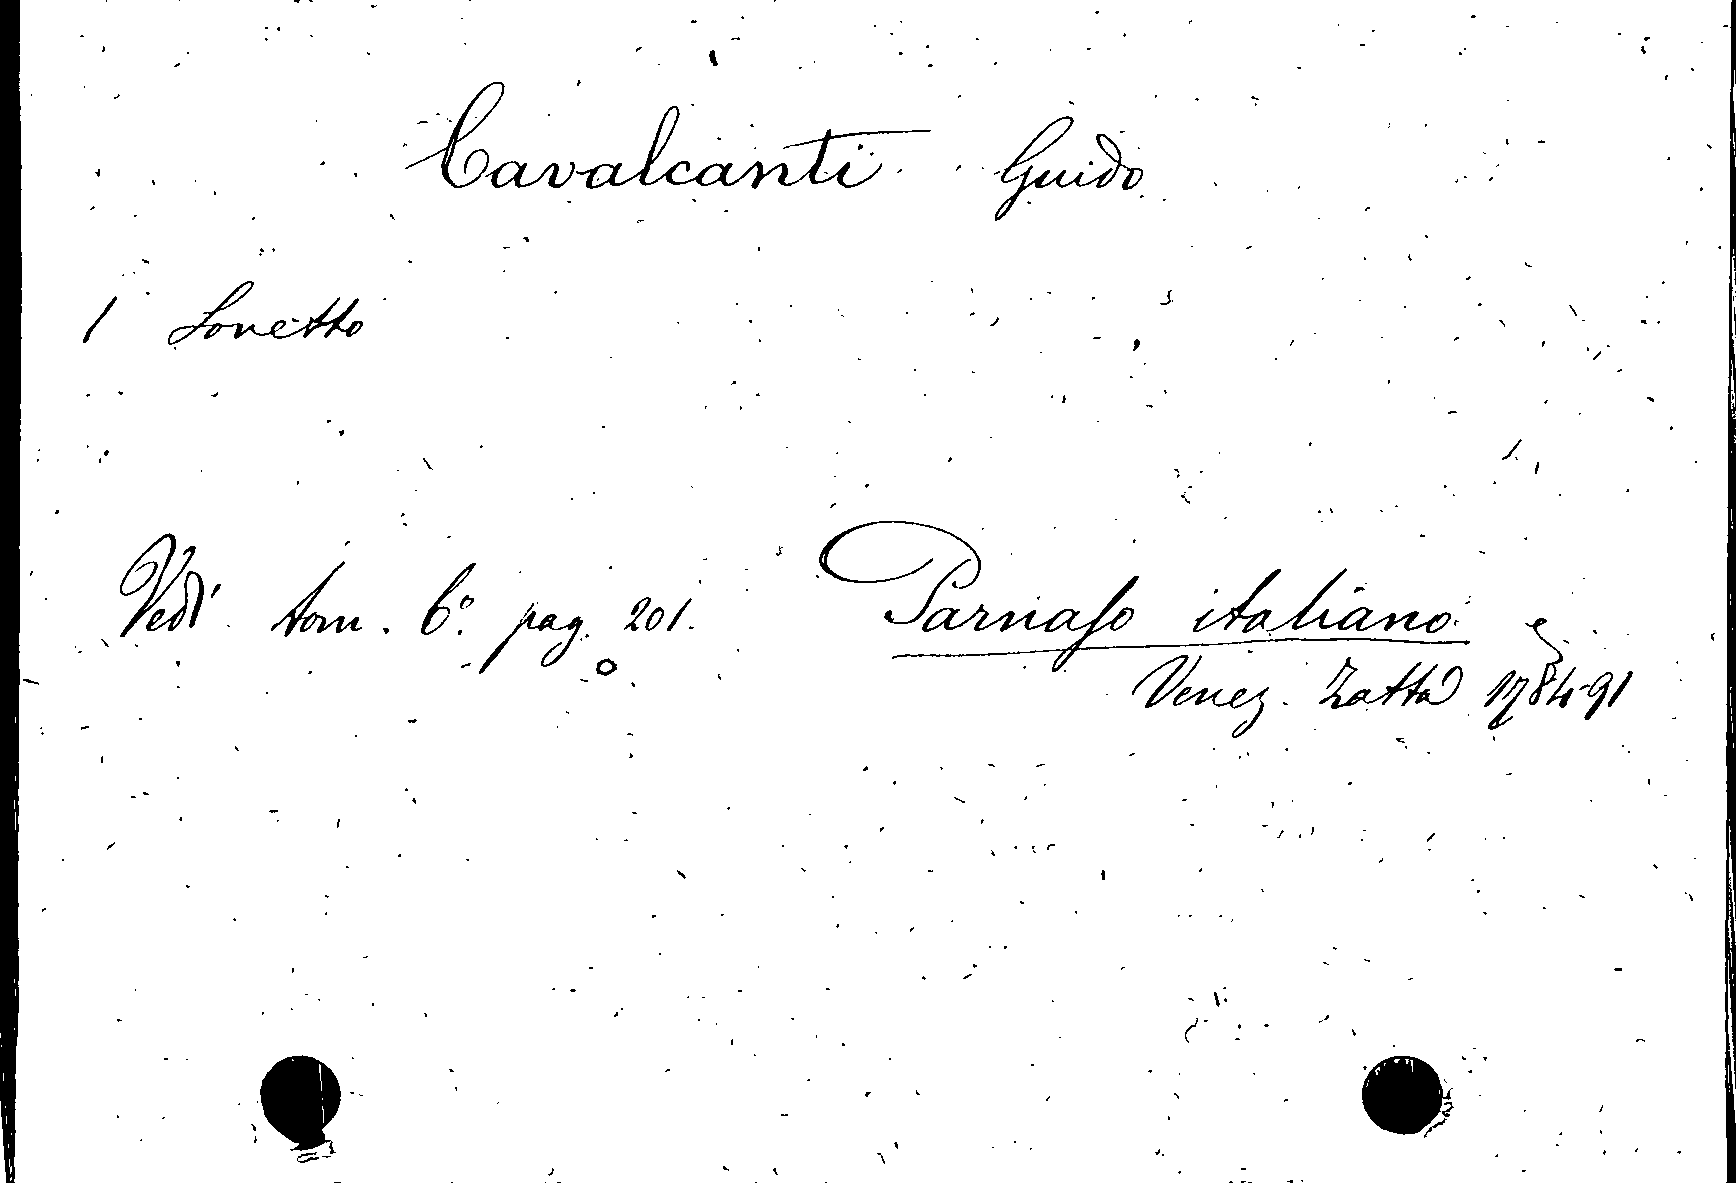 Cavalcanti Guido
1 Sonetto
Vedi tom. 6.° pag. 201. Parnaso italiano
Venez. Zatta 1784-91